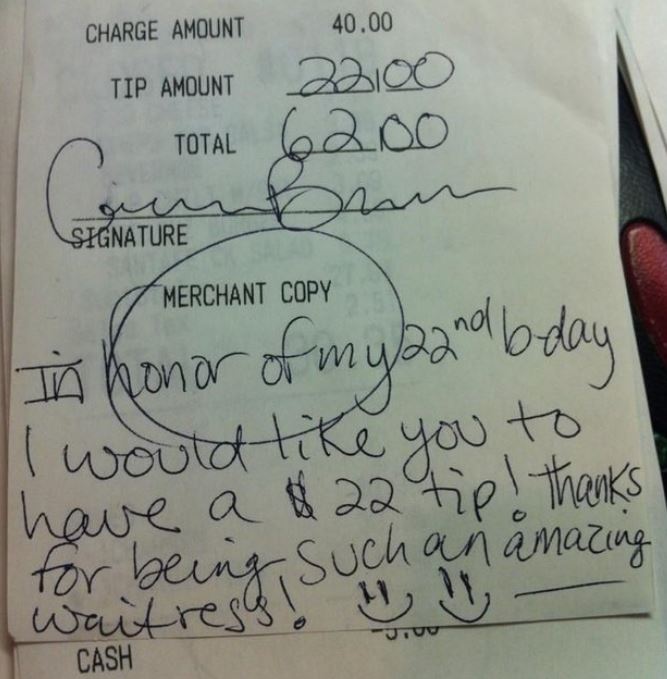 CHARGE AMOUNT 40.00
TIP AMOUNT 22.00
TOTAL 62.00
SIGNATURE
MERCHANT COPY
In honor of my 22nd b-day
I would like you to
have a $22 tip! thanks
for being such an amazing
waitress!
-5.00
CASH